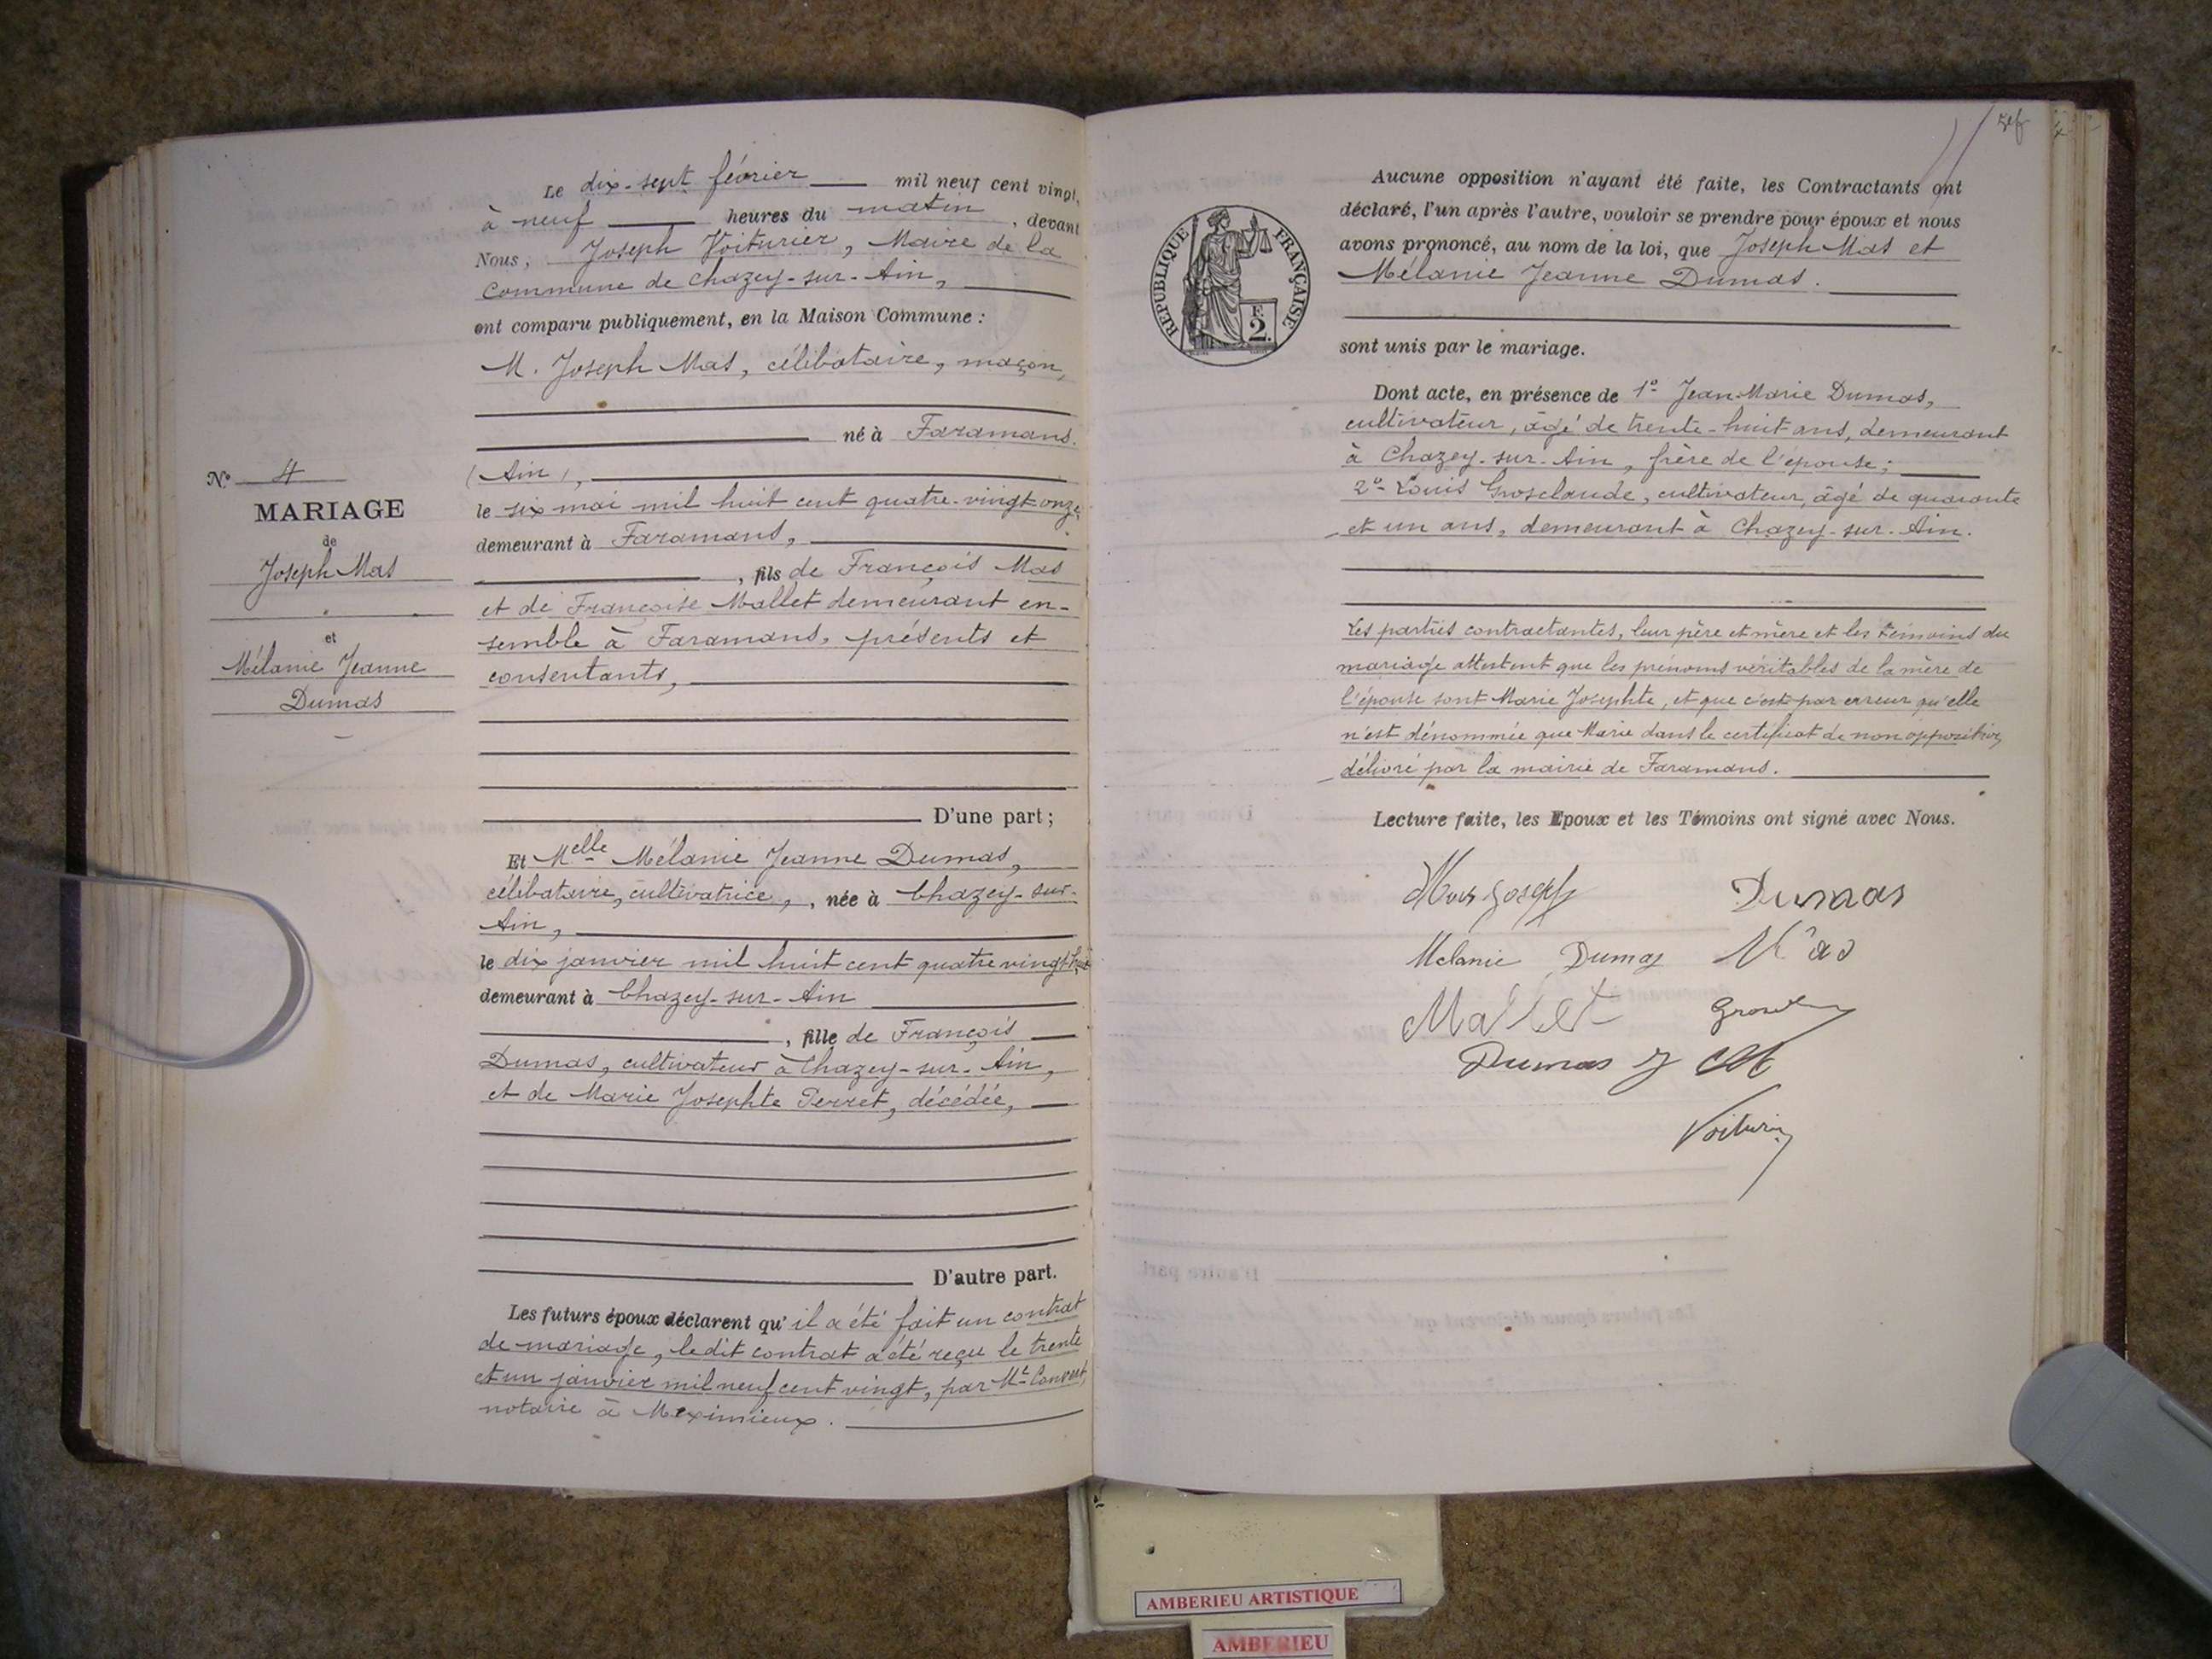 Le dix-sept février mil neuf cent vingt,
à neuf heures du matin, devant
Nous, Joseph Voiturier, Maire de la
Commune de Chazey-sur-Ain,
ont comparu publiquement, en la Maison Commune :
M. Joseph Mas, célibataire, maçon,
né à Faramans.
(Ain),
le six mai mil huit cent quatre-vingt onze,
demeurant à Faramans,
, fils de François Mas
et de Françoise Mallet demeurant en-
semble à Faramans, présents et
consentants,
D'une part ;
N° 4
MARIAGE
de
Joseph Mas
et
Mélanie Jeanne
Dumas
Et Melle Mélanie Jeanne Dumas,
célibataire, cultivatrice, , née à Chazey-sur-
Ain,
le dix janvier mil huit cent quatre vingt-huit
demeurant à Chazey-sur-Ain
, fille de François
Dumas, cultivateur à Chazey-sur-Ain,
et de Marie Josephte Perret, décédée,
D'autre part.
Les futurs époux déclarent qu'il a été fait un contrat
de mariage, ledit contrat a été reçu le trente
et un janvier mil neuf cent vingt, par Mt Convert,
notaire à Meximieux.
RÉPUBLIQUE FRANÇAISE
F.
2.
Aucune opposition n'ayant été faite, les Contractants ont
déclaré, l'un après l'autre, vouloir se prendre pour époux et nous
avons prononcé, au nom de la loi, que Joseph Mas et
Mélanie Jeanne Dumas.
sont unis par le mariage.
Dont acte, en présence de 1° Jean-Marie Dumas,
cultivateur, âgé de trente-huit ans, demeurant
à Chazey-sur-Ain, frère de l'épouse ;
2° Louis Grosclaude, cultivateur, âgé de quarante
et un ans, demeurant à Chazey-sur-Ain.
Les parties contractantes, leur père et mère et les témoins du
mariage attestent que les prénoms véritables de la mère de
l'épouse sont Marie Josephte, et que c'est par erreur qu'elle
n'est dénommée que Marie dans le certificat de non opposition,
délivré par la mairie de Faramans.
Lecture faite, les Epoux et les Témoins ont signé avec Nous.
Mas Joseph Dumas
Mélanie Dumas Mas
Mallet
Dumas J M
Voiturier
AMBERIEU ARTISTIQUE
AMBERIEU